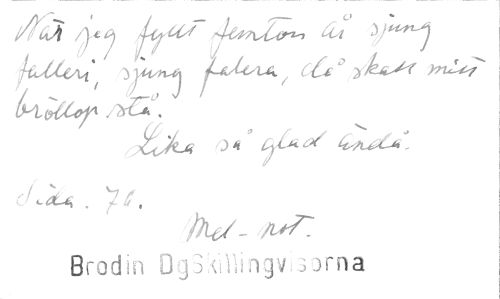 När jag fyllt femton år sjung
falleri, sjung falera, då skall mitt
bröllop stå.
Lika så glad ändå.
Sida. 76.
Mel-not.
Brodin DgSkillingvisorna